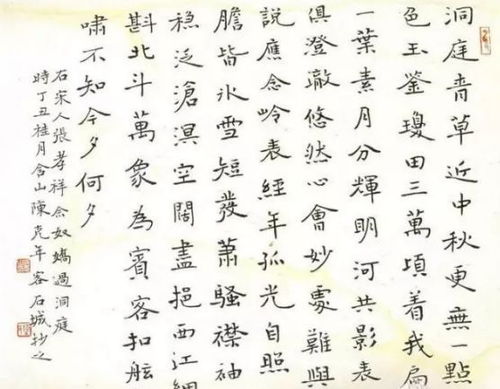 洞庭青草近中秋更無一點
色玉鑒瓊田三萬頃着我扁
一葉素月分輝明河共影表
俱澄澈悠然心會妙處難與
說應念岭表經年孤光自照
膽皆冰雪短發蕭騷襟袖
稳泛滄溟空闊盡挹西江細
斟北斗萬象為賓客扣舷
嘯不知今夕何夕
右宋人張孝祥念奴嬌過洞庭
時丁丑桂月含山陳克年客石城抄之